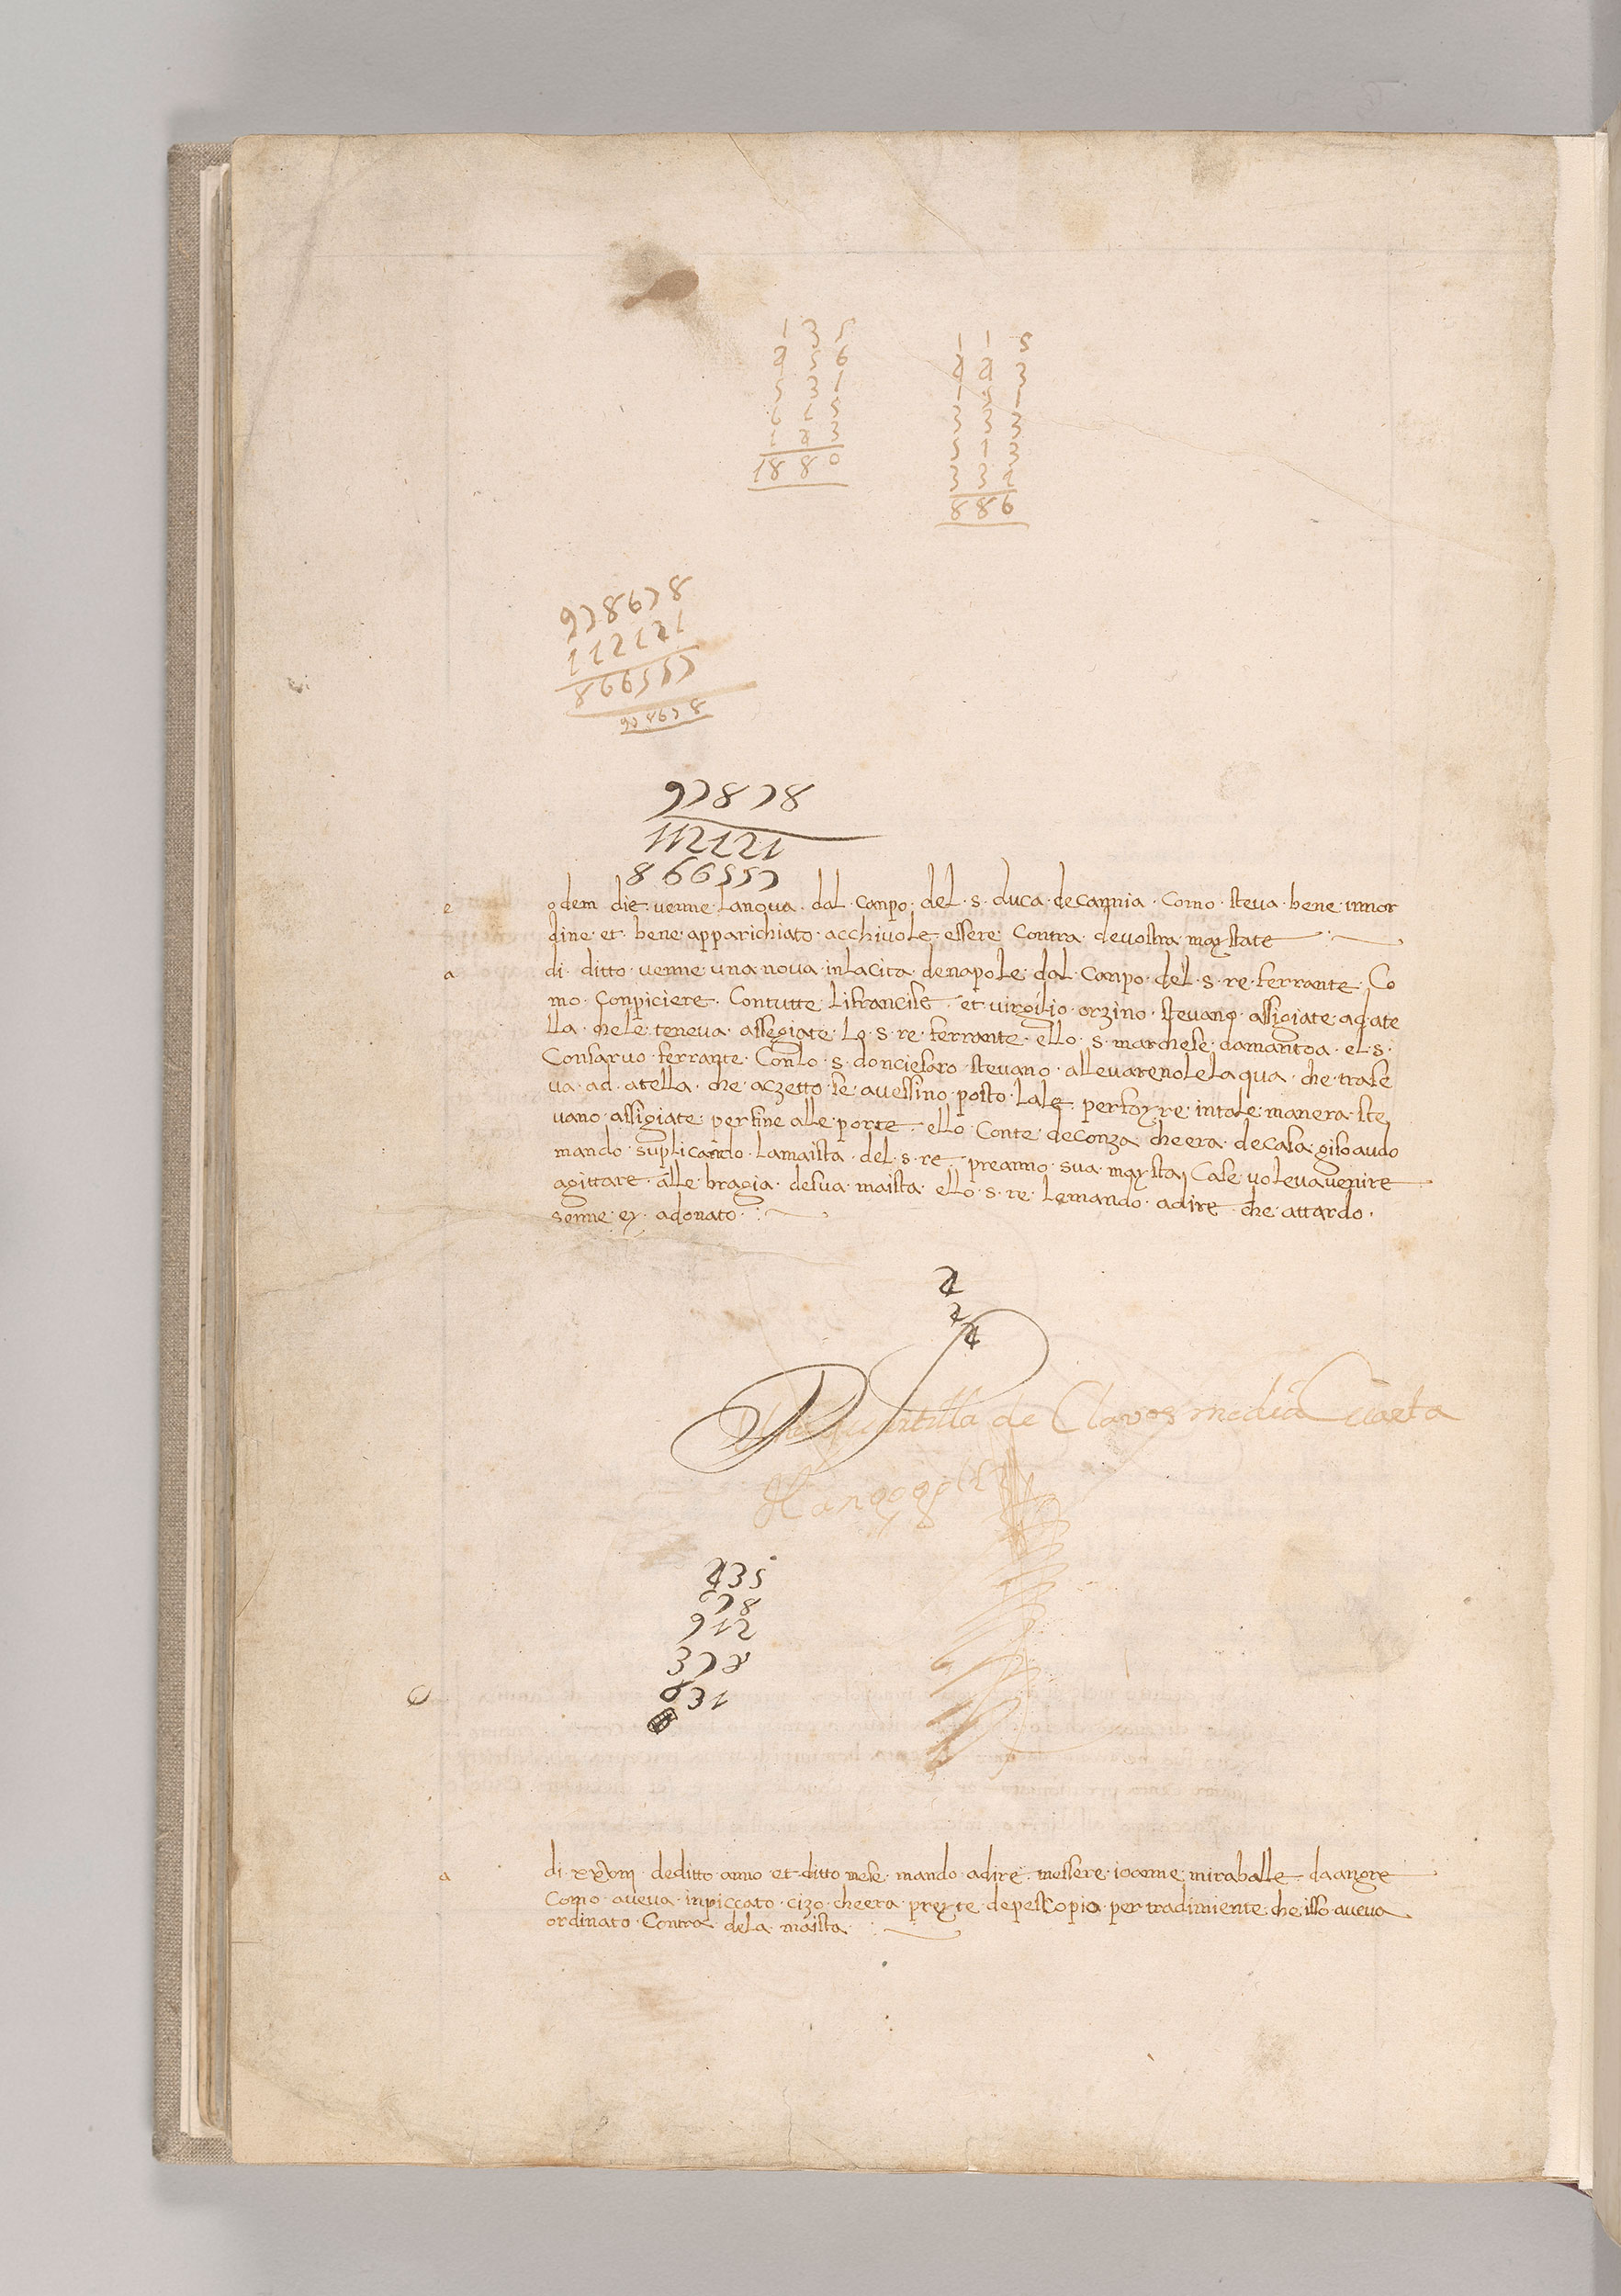 1 3 5
4 5 6
5 3 1
6 1 5
1 4 3
1880
1 1 5
4 4 3
3 3 3
5 1 3
3 3 4
886
978678
112121
866557
978678
97878
112121
866557
e odem die venne lanova · dal · canpo · del · s · duca · decannia · como · steva · bene · innor
dine · et · bene · apparichiato · acchivole · essere · contra · devostra maystate
a di · ditto · venne · una · nova · inlacita · denapole · dal · canpo · del · s · re · ferrante · Co
mo · conpiciere · Contutte · lifrancise · et virgilio · orzino · stevano · assigiate · ad ate
lla · chele · teneva · assegiate · Lo · s · re · ferrante · ello · s · marchese · damantoa · el · s ·
Consarvo · ferrante · Conlo · s · donciesaro · stevano · allevarenolelaqua · che · trase
va · ad · atella · che · aczetto · se · avessino · posto · lale · perfoyre · intale · manera · ste
vano · assigiate · perfine alle · porte · ello · Conte · deconza · cheera · decasa · gisoaudo
mando · suplicando · lamaista · del · s · re · preanno · sua · maysta · Case · volevavenire
agittare · alle · bragia · desua · maista · ello · s · re · lemando · adire · che · attardo ·
senne · ey · adonato ·
4
2
4
de Clavos media Cuarta
435
678
912
378
831
a di · xxviii · deditto · anno · et · ditto mese · mando · adire · messere · ioanne · miraballe · daangre
Como · aveva · inpiccato · cizo · cheera · preyte · depescopia · per tradimiente · che · isso · aveva
ordinato · Contra · dela · maista ·